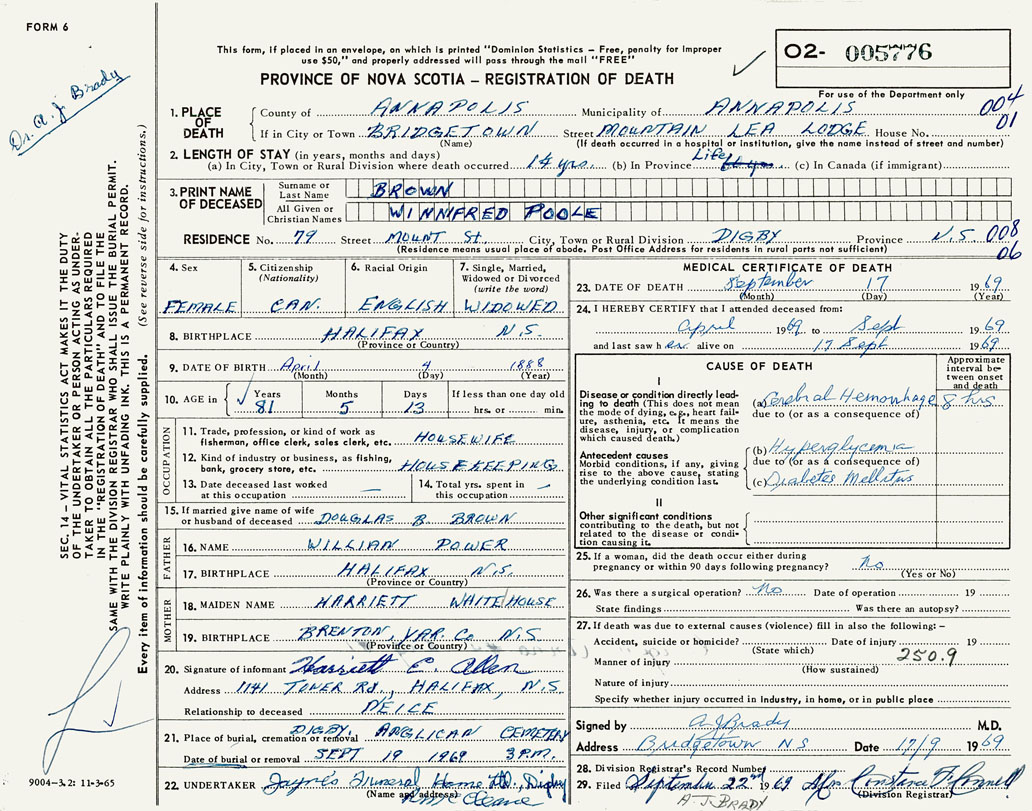 FORM 6
This form, if placed in an envelope, on which is printed "Dominion Statistics – Free, penalty for improper
use $50," and properly addressed will pass through the mail "FREE"
PROVINCE OF NOVA SCOTIA – REGISTRATION OF DEATH
O2- 005776
For use of the Department only
004
01
Dr. A. J. Brady
SEC. 14 – VITAL STATISTICS ACT MAKES IT THE DUTY
OF THE UNDERTAKER OR PERSON ACTING AS UNDER-
TAKER TO OBTAIN ALL THE PARTICULARS REQUIRED
IN THE "REGISTRATION OF DEATH" AND TO FILE THE
SAME WITH THE DIVISION REGISTRAR WHO SHALL ISSUE THE BURIAL PERMIT.
WRITE PLAINLY WITH UNFADING INK. THIS IS A PERMANENT RECORD.
Every item of information should be carefully supplied. (See reverse side for instructions.)
1. PLACE OF DEATH
County of ANNAPOLIS Municipality of ANNAPOLIS
If in City or Town BRIDGETOWN Street MOUNTAIN LEA LODGE House No.
(Name) (If death occurred in a hospital or institution, give the name instead of street and number)
2. LENGTH OF STAY (in years, months and days)
(a) In City, Town or Rural Division where death occurred 14 yrs. (b) In Province Life 14 yrs. (c) In Canada (if immigrant)
3. PRINT NAME OF DECEASED
Surname or Last Name BROWN
All Given or Christian Names WINNIFRED POOLE
RESIDENCE No. 79 Street MOUNT St. City, Town or Rural Division DIGBY Province N.S. 008
(Residence means usual place of abode. Post Office Address for residents in rural parts not sufficient) 06
4. Sex FEMALE
5. Citizenship (Nationality) CAN.
6. Racial Origin ENGLISH
7. Single, Married, Widowed or Divorced (write the word) WIDOWED
8. BIRTHPLACE HALIFAX N.S.
(Province or Country)
9. DATE OF BIRTH April 4 1888
(Month) (Day) (Year)
10. AGE in Years 81 Months 5 Days 13 If less than one day old hrs. or min.
OCCUPATION
11. Trade, profession, or kind of work as fisherman, office clerk, sales clerk, etc. HOUSEWIFE
12. Kind of industry or business, as fishing, bank, grocery store, etc. HOUSEKEEPING
13. Date deceased last worked at this occupation —
14. Total yrs. spent in this occupation —
15. If married give name of wife or husband of deceased DOUGLAS B. BROWN
FATHER
16. NAME WILLIAN POWER
17. BIRTHPLACE HALIFAX N.S.
(Province or Country)
MOTHER
18. MAIDEN NAME HARRIETT WHITEHOUSE
19. BIRTHPLACE BRENTON, YAR. Co N.S.
(Province or Country)
20. Signature of informant Harriett E. Allen
Address 1141 TOWER Rd., HALIFAX, N.S
Relationship to deceased NEICE
21. Place of burial, cremation or removal DIGBY ANGLICAN CEMETERY
Date of burial or removal SEPT 19 1969 3 P.M.
22. UNDERTAKER Jayne's Funeral Home Ltd, Digby
(Name and address)
MEDICAL CERTIFICATE OF DEATH
23. DATE OF DEATH September 17 1969
(Month) (Day) (Year)
24. I HEREBY CERTIFY that I attended deceased from:
April 1969 to Sept 1969
and last saw her alive on 17 Sept 1969
CAUSE OF DEATH
Approximate interval between onset and death
I
Disease or condition directly leading to death (This does not mean the mode of dying, e.g., heart failure, asthenia, etc. It means the disease, injury, or complication which caused death.)
(a) Cerebral Hemorrhage 8 hrs
due to (or as a consequence of)
Antecedent causes
Morbid conditions, if any, giving rise to the above cause, stating the underlying condition last.
(b) Hyperglycemia
due to (or as a consequence of)
(c) Diabetes Mellitus
II
Other significant conditions contributing to the death, but not related to the disease or condition causing it.
25. If a woman, did the death occur either during pregnancy or within 90 days following pregnancy? No
(Yes or No)
26. Was there a surgical operation? No Date of operation 19
State findings Was there an autopsy?
27. If death was due to external causes (violence) fill in also the following: –
Accident, suicide or homicide? Date of injury 19
(State which) 250.9
Manner of injury
(How sustained)
Nature of injury
Specify whether injury occurred in Industry, in home, or in public place
Signed by A J Brady M.D.
Address Bridgetown N S Date 17/9 1969
28. Division Registrar's Record Number
29. Filed September 22nd 1969 Mrs Constance F.
(Division Registrar)
A. J. BRADY
9004–3.2: 11-3-65